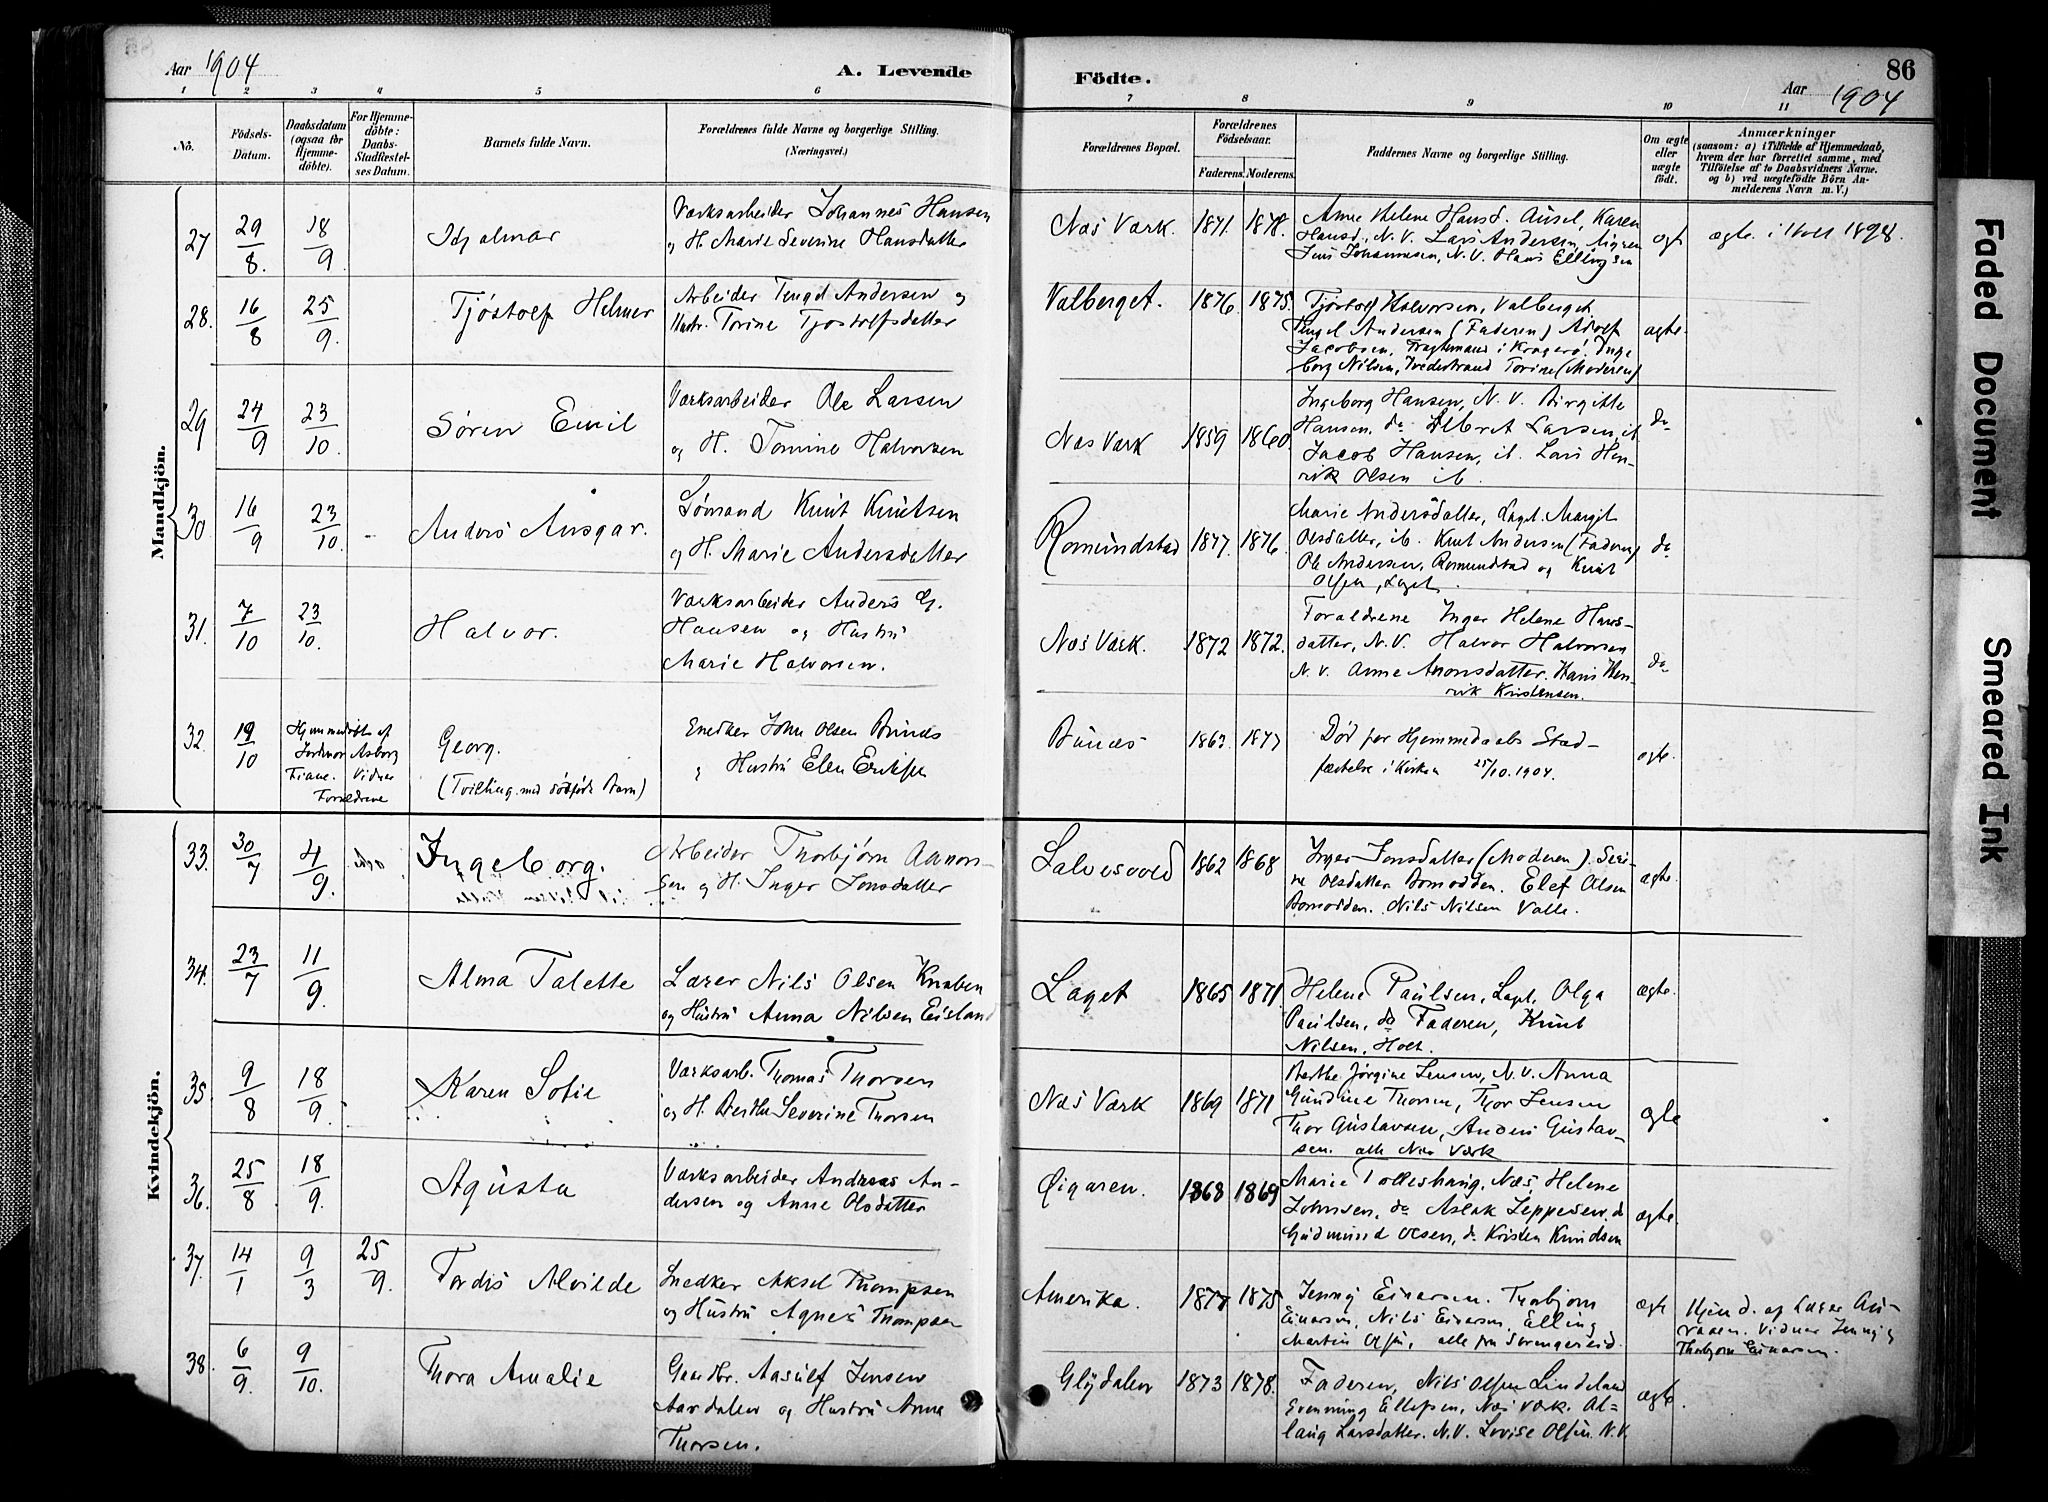 Aar 1904
A. Levende
Födte.
86
Aar 1904
1 2 3 4 5 6 7 8 9 10 11
No.
Födsels-Datum.
Daabsdatum (ogsaa for Hjemmedöbte).
For Hjemmedöbte: Daabs-Stadfæstelses Datum.
Barnets fulde Navn.
Forældrenes fulde Navne og borgerlige Stilling.
(Næringsvei.)
Forældrenes Bopæl.
Forældrenes Födselsaar.
Faderens. Moderens.
Faddernes Navne og borgerlige Stilling.
Om ægte eller uægte födt.
Anmærkninger
(saasom: a) i Tilfælde af Hjemmedaab,
hvem der har forrettet samme, med
Tilföielse af to Daabsvidners Navne.
og b) ved uægtefödte Börn Anmelderens Navn m. V.)
Mandkjön.
27 29/8. 18/9 Hjalmar
Værksarbeider Johannes Hansen
og H. Marie Severine Hansdatter
Næs Værk. 1871. 1878.
Anne Helene Hansd. Karen
Hansd., N. V. Lars Andersen,
Jens Johannesen, N. V. Hans Ellingsen
ægt
ægte. i Holt 1898.
28. 16/8 25/9. Tjöstolf Helmer
Arbeider Tengel Andersen og
Hustr. Torine Tjostolfsdatter
Valberget. 1876. 1875.
Tjöstolf Halvorsen, Valberget
Tengel Andersen (Faderen) Adolf
Jacobsen, Fragtemand i Kragerö. Inge
borg Nilsen, Tvedestrand Torine (Moderen)
ægte.
29 24/9 23/10. Sören Emil
Værksarbeider Ole Larsen
og H. Tomine Halvorsen
Næs Værk 1859 1860.
Ingeborg Hansen, N. V. Birgitte
Hansen. do Albret Larsen, ib
Jacob Hansen, ib. Lars Hen-
rik Olsen ib.
do
30. 16/9 23/10. Anders Ansgar.
Sömand Knut Knutsen
og H. Marie Andersdatter
Romundstad 1877. 1876.
Marie Andersdatter, Laget. Margit
Olsdatter, ib. Knut Andersen (Faderen)
Ole Andersen, Romundstad og Knut
Olsen, Laget.
do
31. 7/10 23/10. Halvor.
Værksarbeider Anders G.
Hansen og Hustru
Marie Halvorsen.
Næs Værk. 1872 1872.
Forældrene Inger Helene Hans-
datter, N. V. Halvor Halvorsen
N. V. Anne Anonsdatter. Hans Hen-
rik Kristensen.
do
32. 19/10
Hjemmedöbt af
Jordmor Asborg
Fiane. Vidner
Forældrene
Georg.
(Tvilling med dödfödt Barn)
Snedker John Olsen Bunes
og Hustru Elen Eriksen
Bunes 1863. 1877
Död för Hjemmedaabs Stad-
fæstelse i Kirken 25/10. 1904.
ægte.
Kvindekjön.
33. 30/7 4/9. Ingeborg.
Arbeider Thorbjörn Aanon-
sen og H. Inger Jonsdatter
1862 1868
Inger Jonsdatter (Moderen). Seri-
ne Olsdatter Bomodden. Elef Olsen
Bomodden. Nils Nilsen Valle.
ægte.
34. 23/7 11/9. Alma Talette
Lærer Nils Olsen Knaben
og Hustru Anna Nilsen Eisland
Laget 1865 1871
Helene Paulsen, Laget. Olga
Paulsen, do Faderen, Knut
Nilsen, Holt.
ægte.
35. 9/8 18/9. Karen Sofie
Værksarb. Thomas Thorsen
og H. Berthe Severine Thorsen
Næs Værk 1869 1871
Berthe Jörgine Jensen, N. V. Anna
Gundine Thorsen, Thor Jensen
Thor Gustavsen, Anders Gustav-
sen. alle Næs Værk
ægte
36. 25/8. 18/9. Agusta
Værksarbeider Andreas An-
dersen og Anne Olsdatter
Öigaren. 1868 1869
Marie Tollefshaug, Næs, Helene
Johnsen, do Aslak Jeppesen, do
Gudmund Olsen, do Kristen Knudsen
ægte.
37. 14/1 9/3 25/9. Tordis Alvilde
Snedker Aksel Thompsen
og Hustru Agnes Thompsen
Amerika. 1877 1875
Jenny Einarsen. Thorbjorn
Einarsen, Nils Einarsen, Elling
Martin Olsen, alle fra Songereid.
ægte
Hjemd. af Lærer
Vidner Jenny &
Thorbjorn Einarsen.
38. 6/9. 9/10. Thora Amalie
Gaardbr. Aasulf Jensen
Aardalen og Hustru Anna
Thorsen.
Glydalen 1873 1878.
Faderen, Nils Olsen Lindeland
Evenning Ellefsen, Næs Værk. As-
laug Larsdatter. N. V. Lovise Olsen. N. V.
ægte.
Faded Document
Smeared Ink